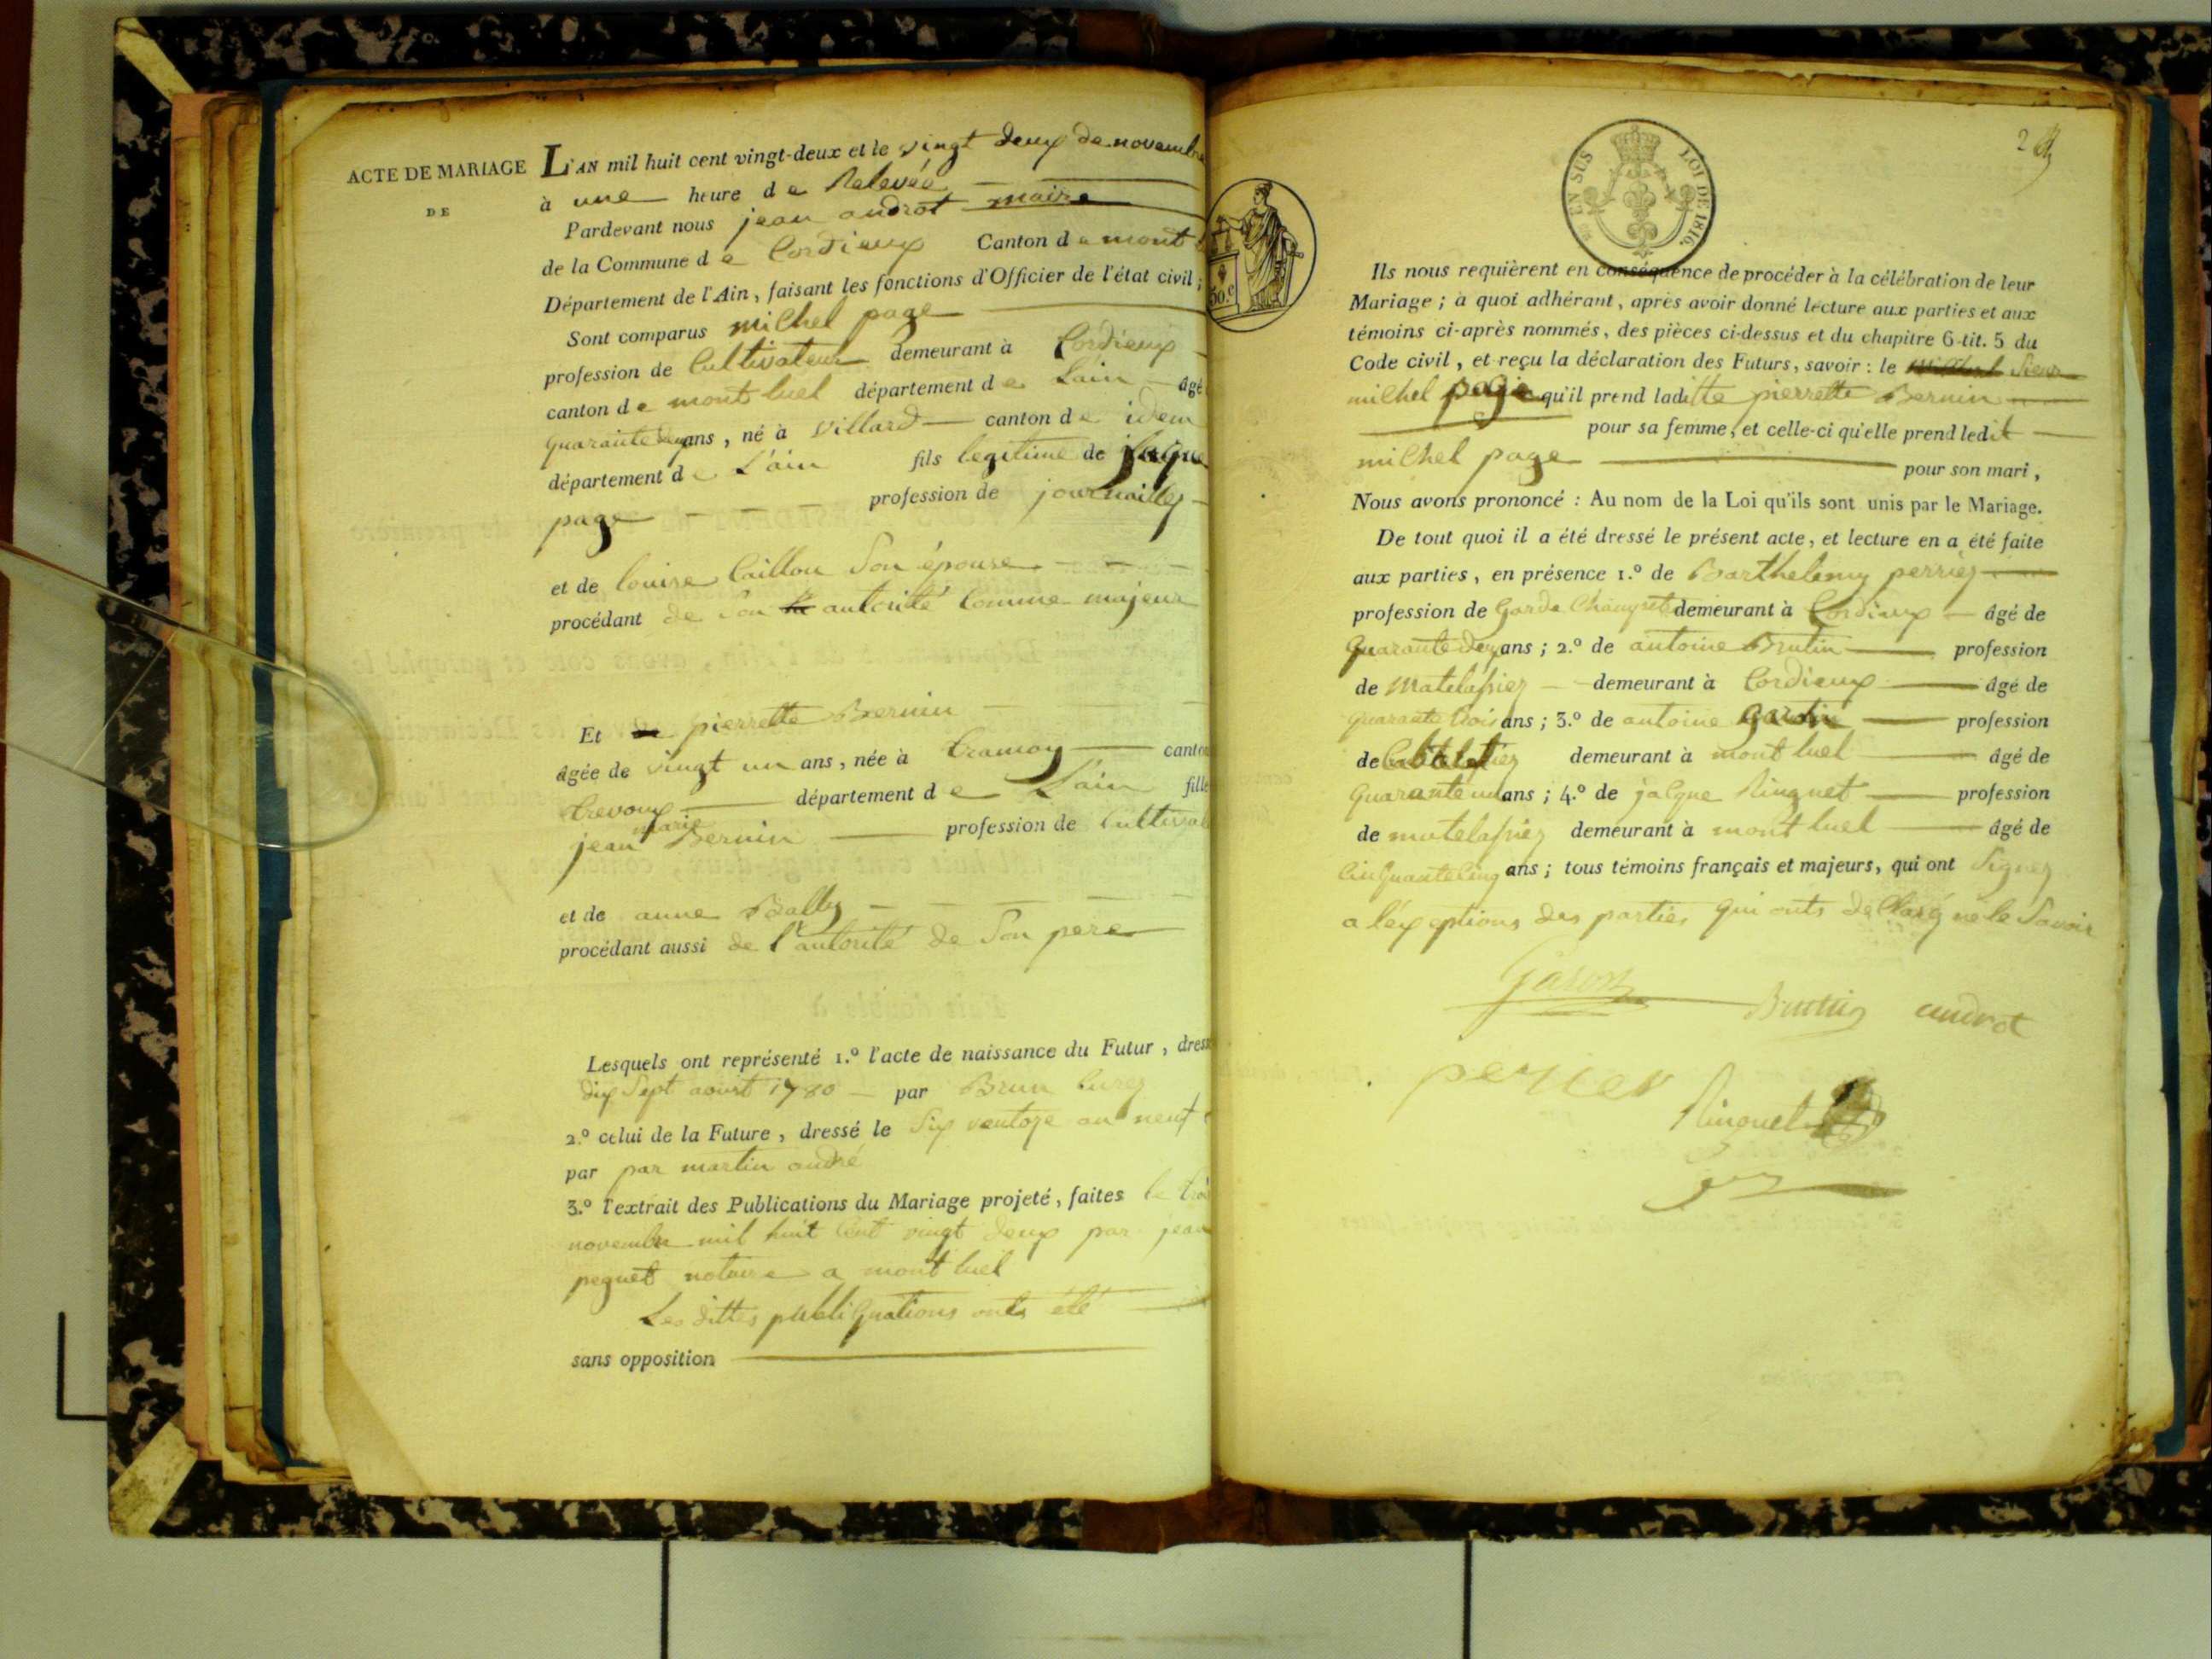 ACTE DE MARIAGE
DE
L'AN mil huit cent vingt-deux et le vingt deux de novembre
à une heure de Relevée
Pardevant nous jean androt maire
de la Commune de Cordieux Canton de mont
Département de l'Ain, faisant les fonctions d'Officier de l'état civil;
Sont comparus michel page
profession de Cultivateur demeurant à Cordieux
canton de mont luel département de L'ain âgé
quarante deux ans, né à Villard canton de idem
département de L'ain fils legitime de jacque
page profession de journaillez
et de louise Caillou son épouse
procédant de son autorité comme majeur
Et pierrette Bernin
âgée de vingt un ans, née à Cramoy canton
trevoux département de L'ain fille
jean marie Bernin profession de Cultivat
et de anne Bally
procédant aussi de l'autorité de son pere
Lesquels ont représenté 1.º l'acte de naissance du Futur, dress
dix sept aoust 1780 par Brun Curez
2.º celui de la Future, dressé le six ventoze an neuf
par par martin andré
3.º l'extrait des Publications du Mariage projeté, faites le troi
novembre mil huit Cent vingt deux par jean
peguet notaire a mont luel
Les dittes publiquations onts été
sans opposition
2
EN SUS LOI DE 1816.
50.c
Ils nous requièrent en conséquence de procéder à la célébration de leur
Mariage; à quoi adhérant, après avoir donné lecture aux parties et aux
témoins ci-après nommés, des pièces ci-dessus et du chapitre 6 tit. 5 du
Code civil, et reçu la déclaration des Futurs, savoir: le Sieur
michel page qu'il prend laditte pierrette Bernin
pour sa femme, et celle-ci qu'elle prend ledit
michel page pour son mari,
Nous avons prononcé: Au nom de la Loi qu'ils sont unis par le Mariage.
De tout quoi il a été dressé le présent acte, et lecture en a été faite
aux parties, en présence 1.º de Barthelemy perriez
profession de Garde Champet demeurant à Cordieux âgé de
quarante deux ans; 2.º de antoine Brutin profession
de matelassiez demeurant à Cordieux âgé de
quarante trois ans; 3.º de antoine profession
de demeurant à mont luel âgé de
quarante un ans; 4.º de jacque Ringuet profession
de matelassiez demeurant à mont luel âgé de
cinquante cinq ans; tous témoins français et majeurs, qui ont signez
a l'exeptions des parties qui onts déClaréz ne le savoir
androt
perrier
Ringuet